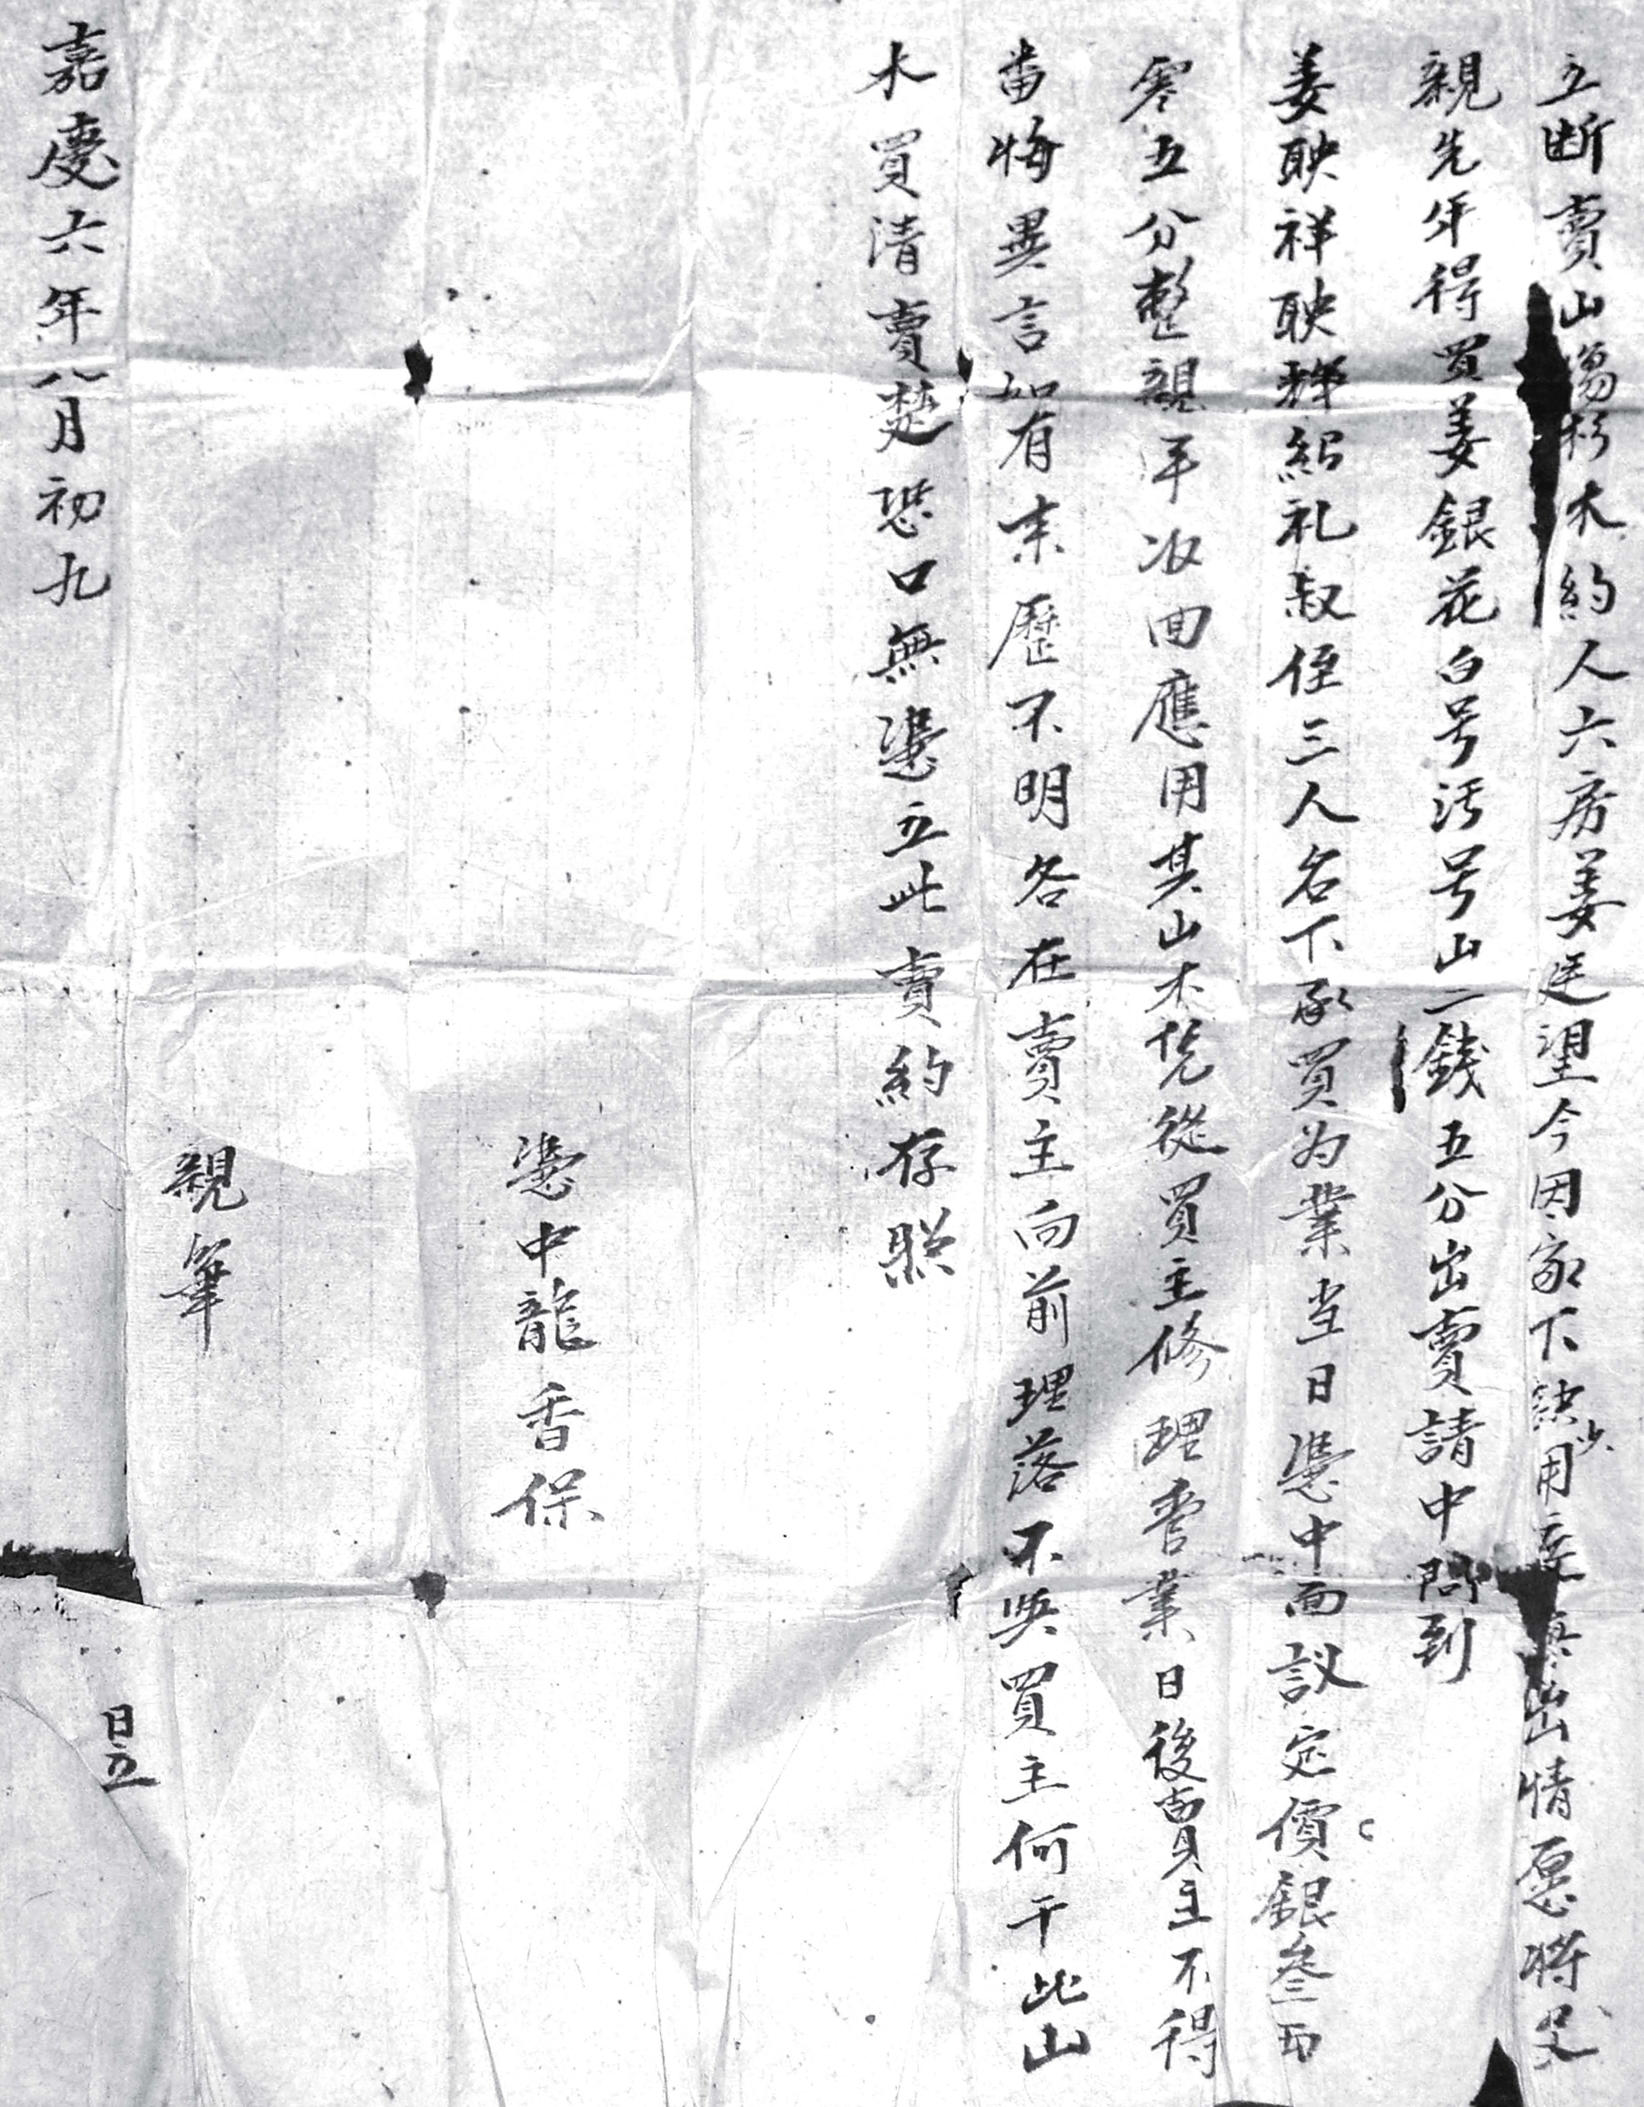 立断賣山塲杉木約人六房姜廷望今因家下缺少用度無出情愿將父
親先年得買姜銀花白号污号山二錢五分出賣請中問到
姜映祥映輝紹礼叔侄三人名下承買为業当日凴中面议定價銀叁両
零五分整親手收回應用其山木凭從買主修理晉業日後賣主不得
畨悔異言如有来歷不明各在賣主向前理落不與買主何干此山
木買清賣楚恐口無凴立此賣約存照
凴中龍香保
親筆
嘉慶六年八月初九日立